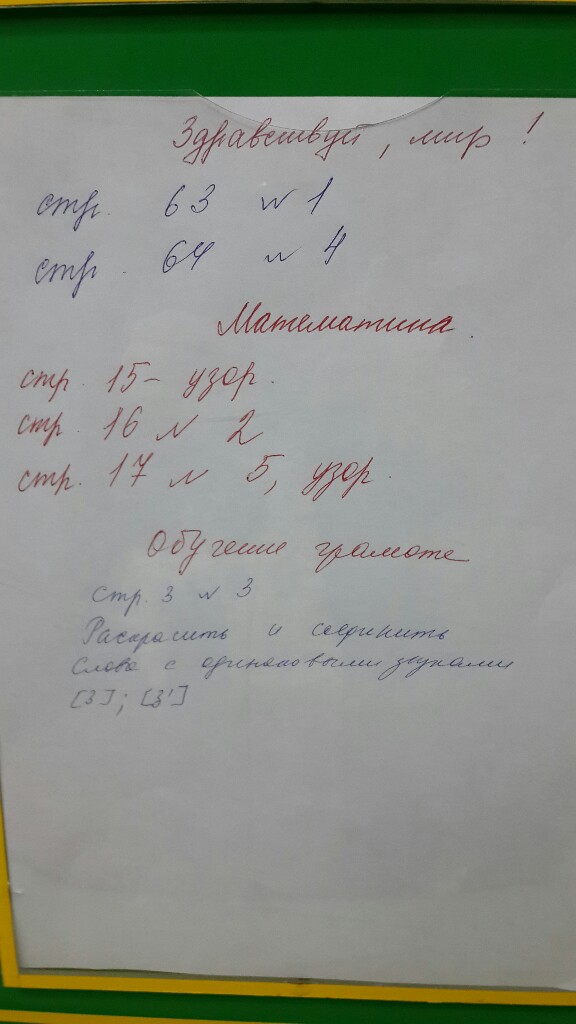 Здравствуй, мир!
стр. 63 № 1
стр. 64 № 4
Математика.
стр. 15 - узор.
стр. 16 № 2
стр. 17 № 5, узор.
Обучение грамоте
стр. 3 № 3
Раскрасить и соединить
слова с одинаковыми звуками
[З]; [З']